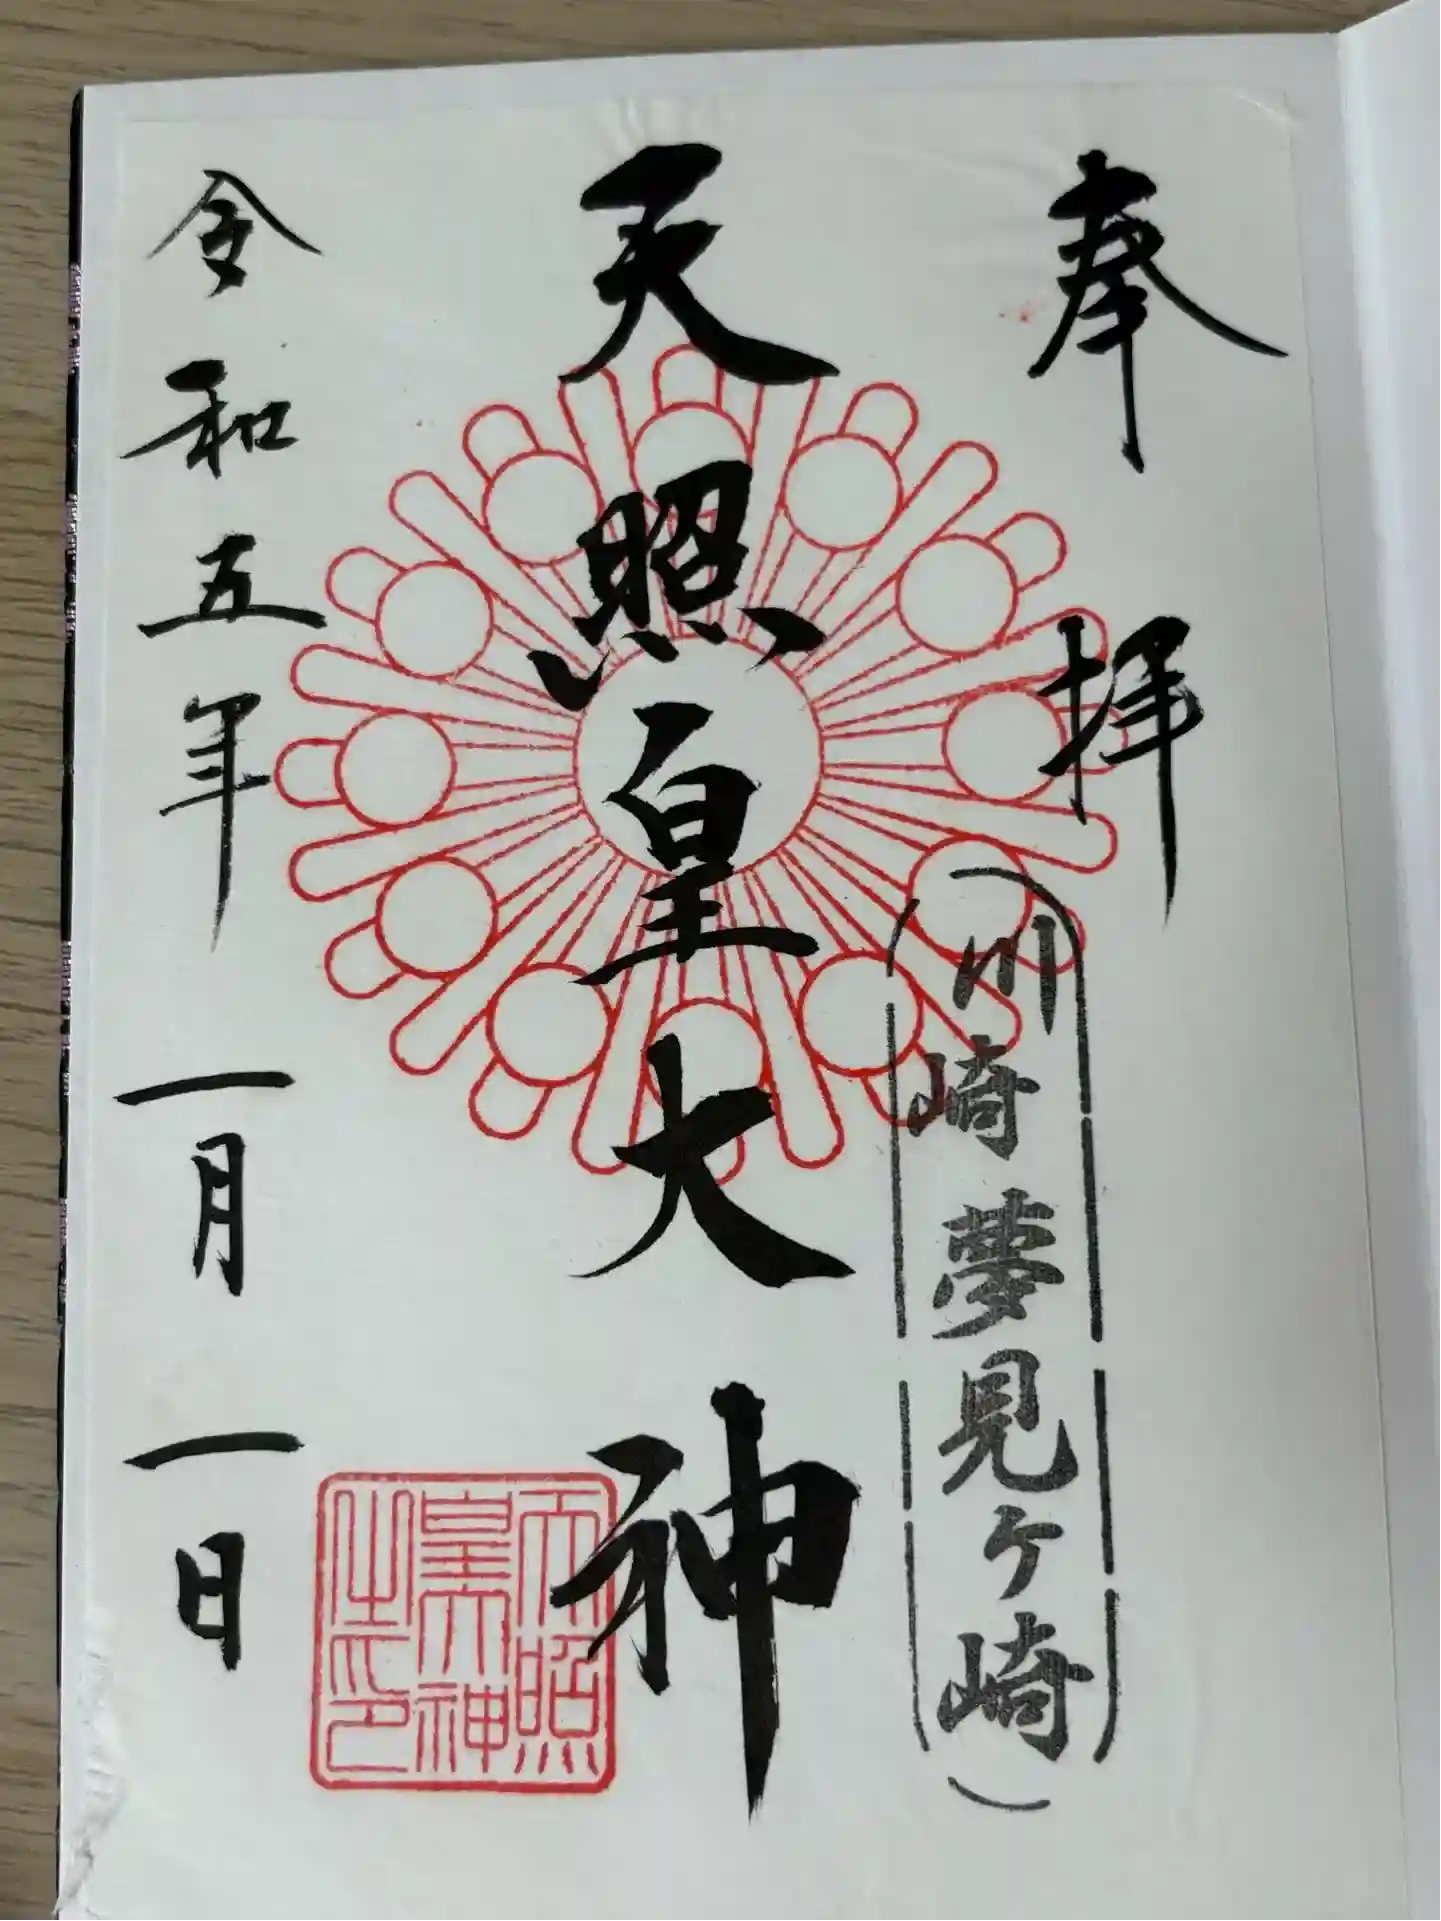 奉拝
川崎夢見ヶ崎
天照皇大神
天照
皇大神
之印
令和五年一月一日